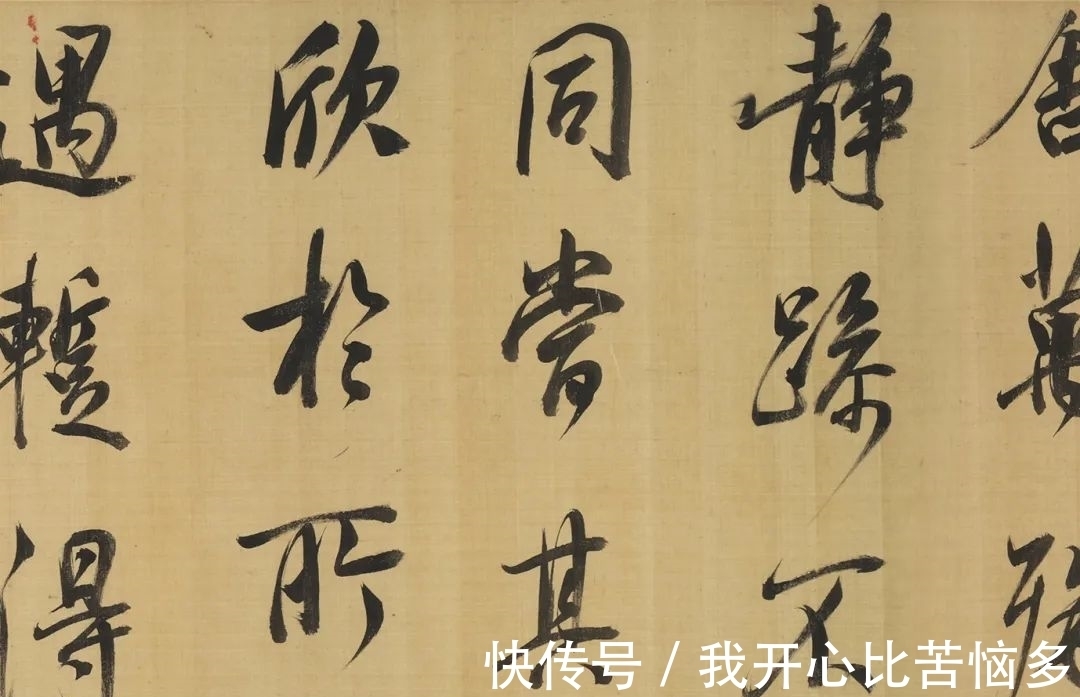 舍萬殊
静躁不
同當其
欣於所
遇蹔得
快传号 / 我开心比苦恼多